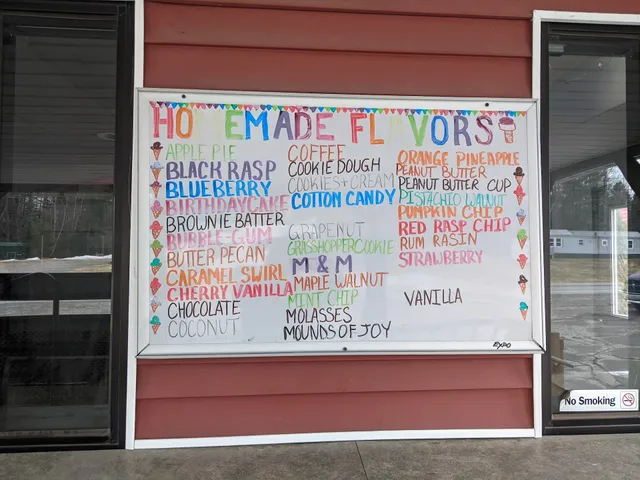 HOMEMADE FLAVORS
APPLE PIE
BLACK RASP
BLUEBERRY
BIRTHDAYCAKE
BROWNIE BATTER
BUBBLE-GUM
BUTTER PECAN
CARAMEL SWIRL
CHERRY VANILLA
CHOCOLATE
COCONUT
COFFEE
COOKIE DOUGH
COOKIES+CREAM
COTTON CANDY
GRAPENUT
GRASSHOPPER COOKIE
M & M
MAPLE WALNUT
MINT CHIP
MOLASSES
MOUNDS OF JOY
ORANGE PINEAPPLE
PEANUT BUTTER
PEANUT BUTTER CUP
PISTACHIO WALNUT
PUMPKIN CHIP
RED RASP CHIP
RUM RASIN
STRAWBERRY
VANILLA
EXPO
No Smoking